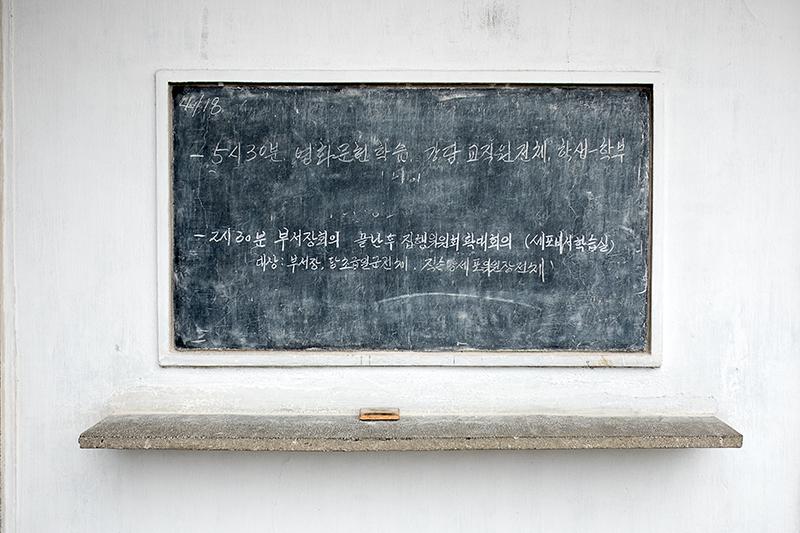 4/18
- 5시30분 영화문헌학습, 강당 교직원전체, 학생-학부
- 2시30분 부서장회의 끝난후 집행위원회확대회의 (세포비서학습실)
대상: 부서장, 당초급일군전체,